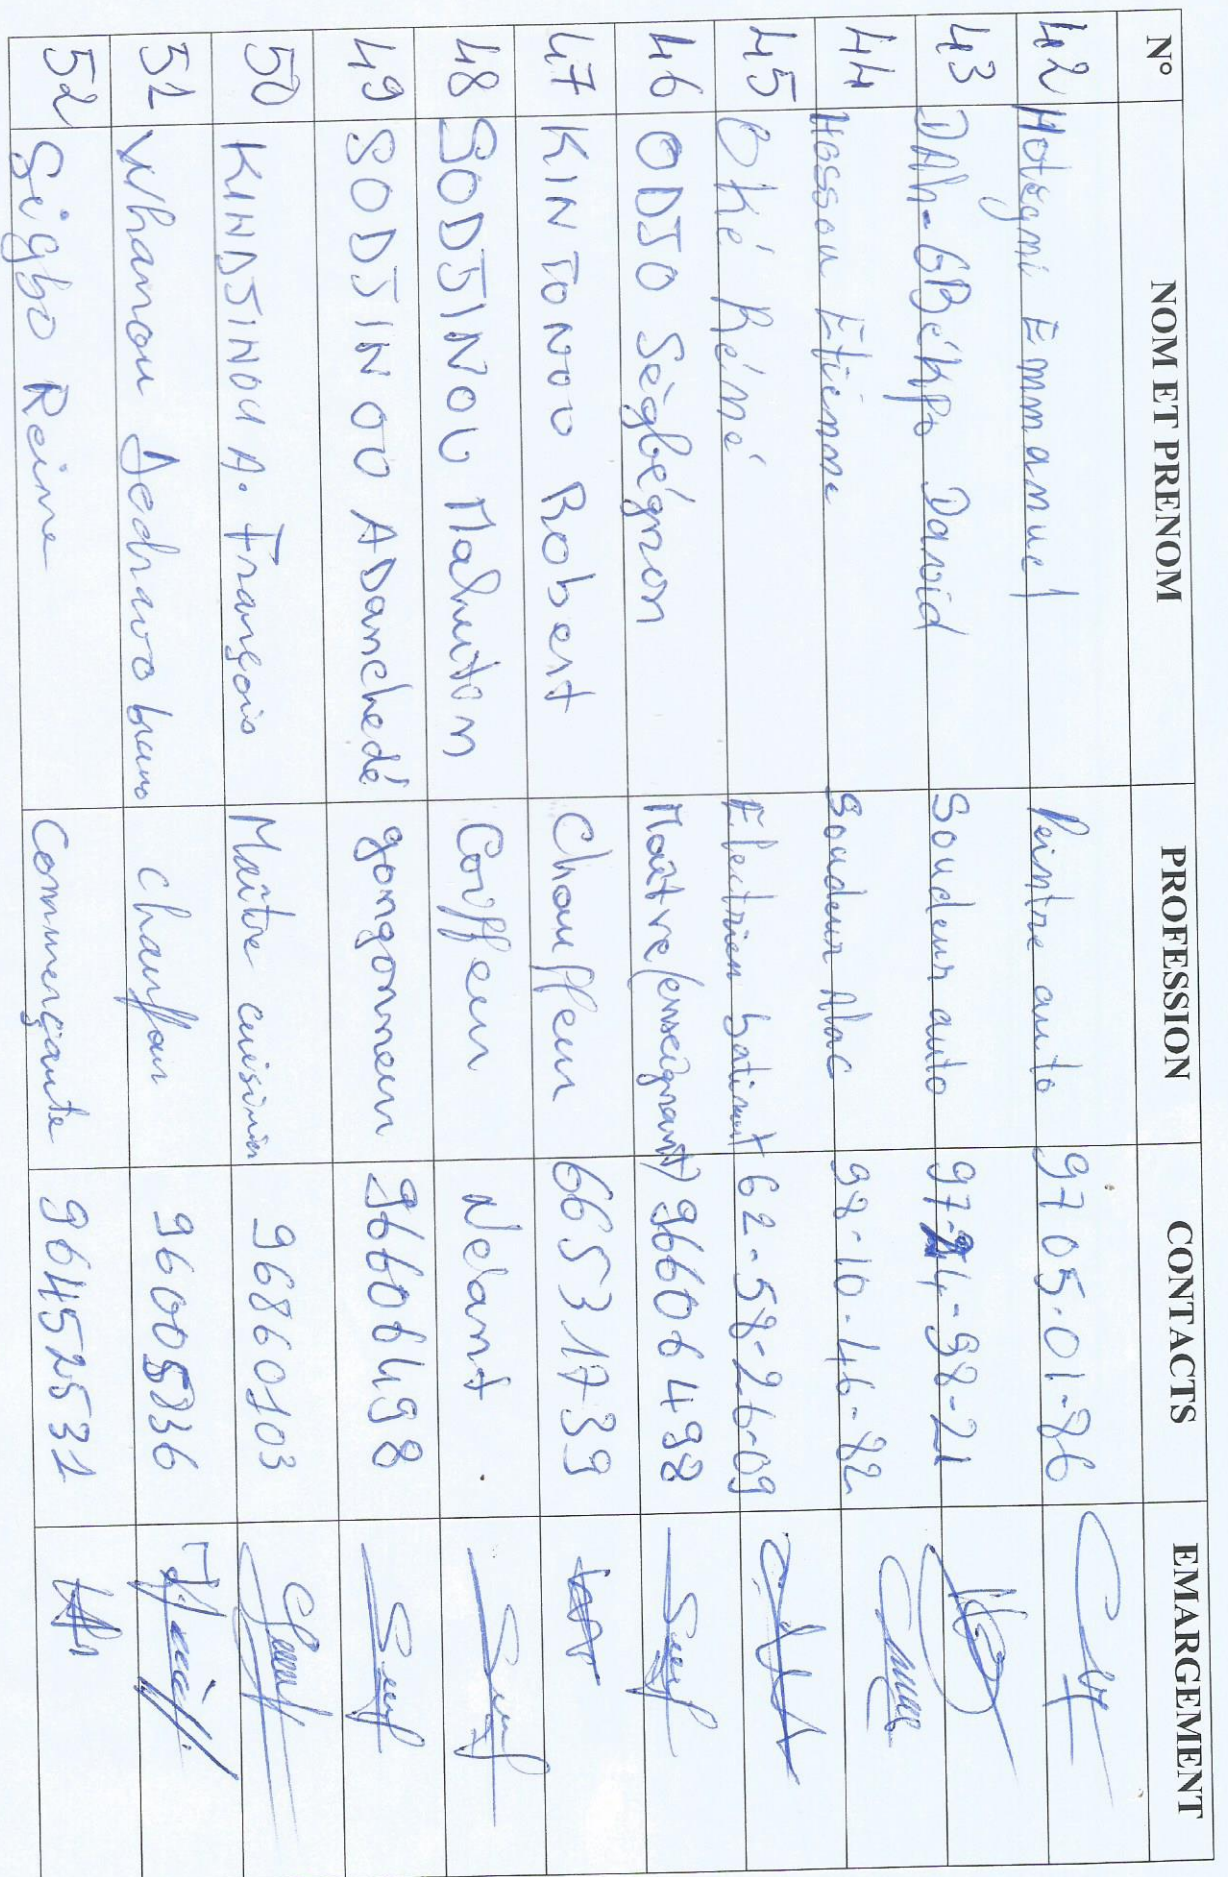 N° NOM ET PRENOM PROFESSION CONTACTS EMARGEMENT
42 Hotegni Emmanuel Peintre auto 97 05-01-86
43 DAh-GBéKpo David Soudeur auto 97-94-98-21
44 Hossou Etienne Soudeur 98-10-46-82
45 OKé Réné Electrien batiment 62-58-26-09
46 ODJO Sègbégnon Maître (enseignant) 96606498
47 KINTONOU Robert Chauffeur 66531739
48 SODJINOU Mahuton Coiffeur Neant
49 SODJINOU ADanchedé gongonneur 96606498
50 KINDJINOU A. François Maître cuisinier 96860103
51 Whanou chauffeur 96005836
52 Sègbo Reine Commerçante 964525531